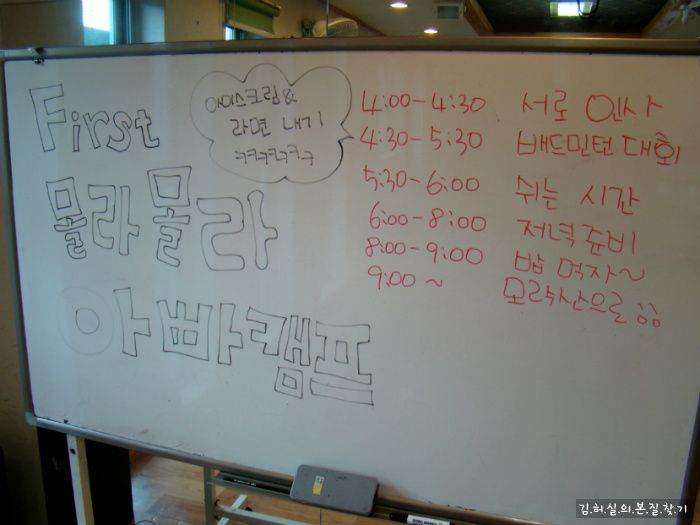 First
몰라몰라
아빠캠프
아이스크림&
라면 내기
ㅋㅋㅋㅋㅋㅋ
4:00-4:30 서로 인사
4:30-5:30 배드민턴대회
5:30-6:00 쉬는 시간
6:00-8:00 저녁준비
8:00-9:00 밥 먹자~
9:00 ~
김.허.실.의.본.질.찾.기